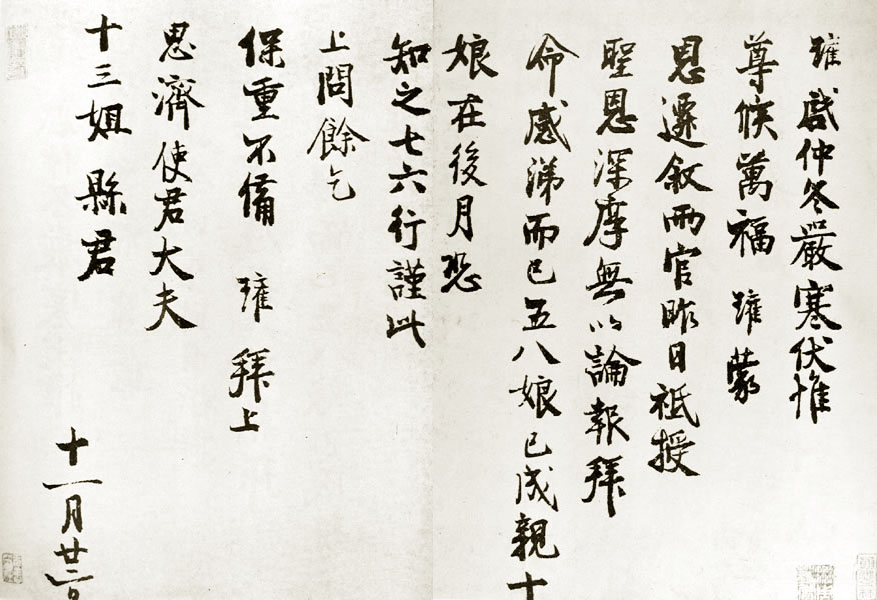 瓘啟仲冬嚴寒伏惟
尊候萬福瓘蒙
恩遷敘兩官昨日祗授
聖恩深厚無以論報拜
命感涕而已五八娘已成親十
娘在後月恐
知之七六行謹此
上問餘乞
保重不備 瓘拜上
思濟使君大夫
十三姐縣君
十一月廿二日